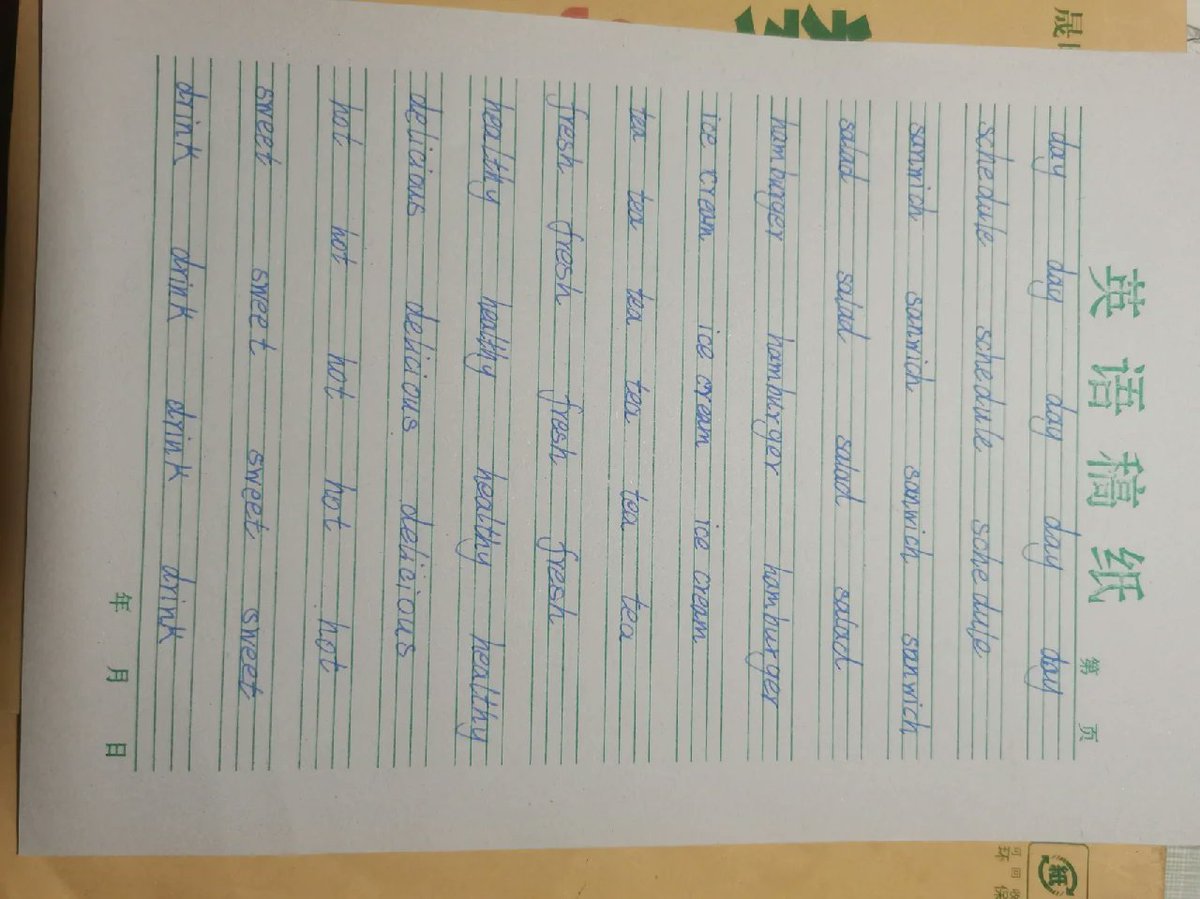 英语稿纸
第 页
day day day day day
schedule schedule schedule
sanwich sanwich sanwich sanwich
salad salad salad salad
hamburger hamburger hamburger
ice cream ice cream ice cream
tea tea tea tea tea tea
fresh fresh fresh fresh
healthy healthy healthy healthy
delicious delicious delicious
hot hot hot hot hot
sweet sweet sweet sweet
drink drink drink drink
年 月 日
晟
紙
可回收
环保